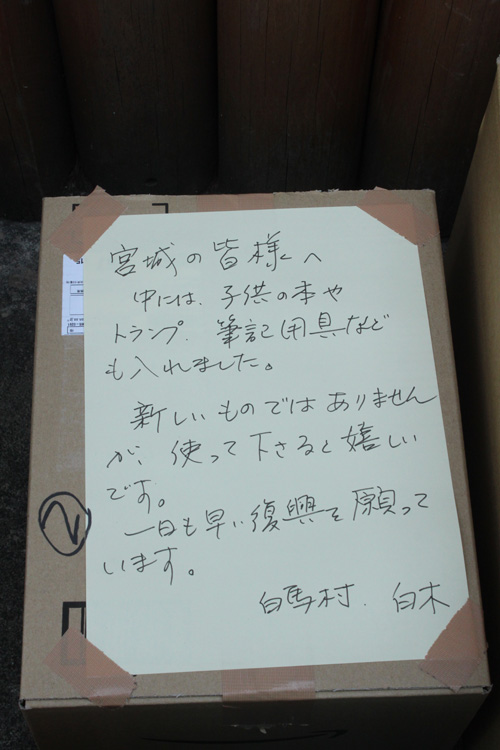 宮城の皆様へ
中には、子供の本や
トランプ、筆記用具など
も入れました。
新しいものではありません
が、使って下さると嬉しい
です。
一日も早い復興を願って
います。
白馬村、白木
②